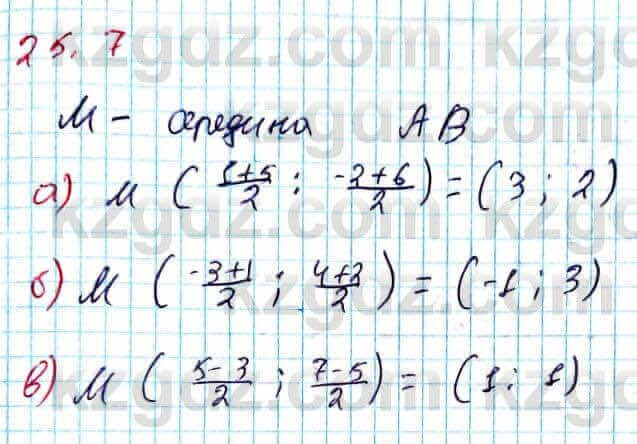 25.7
М – середина АВ
а) М ( (1+5)/2 ; (-2+6)/2 ) = (3 ; 2)
б) М ( (-3+1)/2 ; (4+2)/2 ) = (-1 ; 3)
в) М ( (5-3)/2 ; (7-5)/2 ) = (1 ; 1)
kzgdz.com kzgdz.com
kzgdz.com kzgdz.com
kzgdz.com kzgdz.com